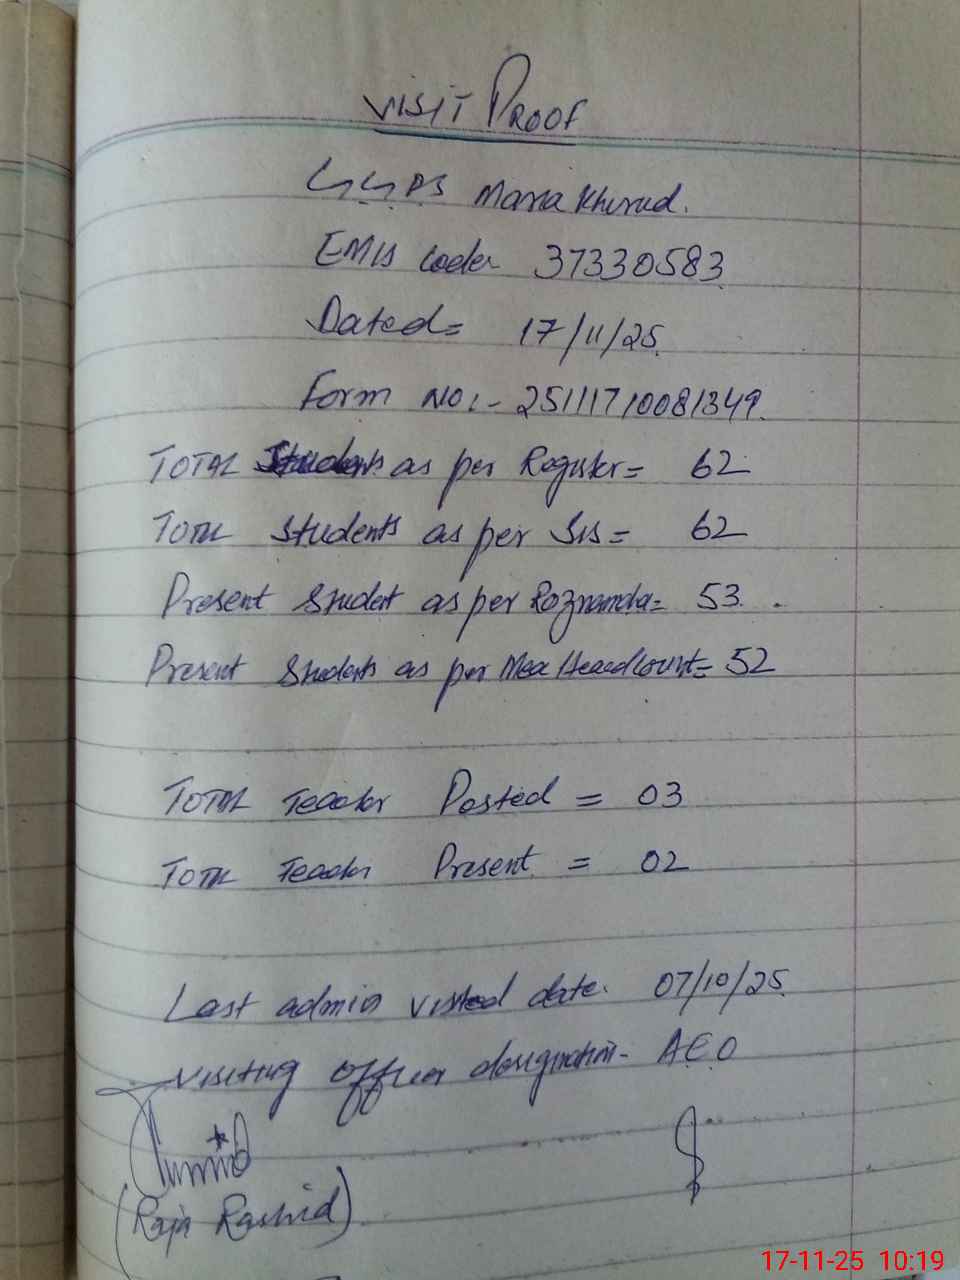 VISIT PROOF
GGPS Mara Khurad.
EMIS code:- 37330583
Dated= 17/11/25
Form NO:- 25111710081349.
TOTAL Students as per Register= 62
TOTAL Students as per SIS= 62
Present Student as per Roznamcha= 53.
Present Students as per Mea Headcount= 52
TOTAL Teacher Posted = 03
TOTAL Teacher Present = 02
Last admin visited date. 07/10/25
Visiting officer designation- AEO
(Raja Rashid)
17-11-25 10:19